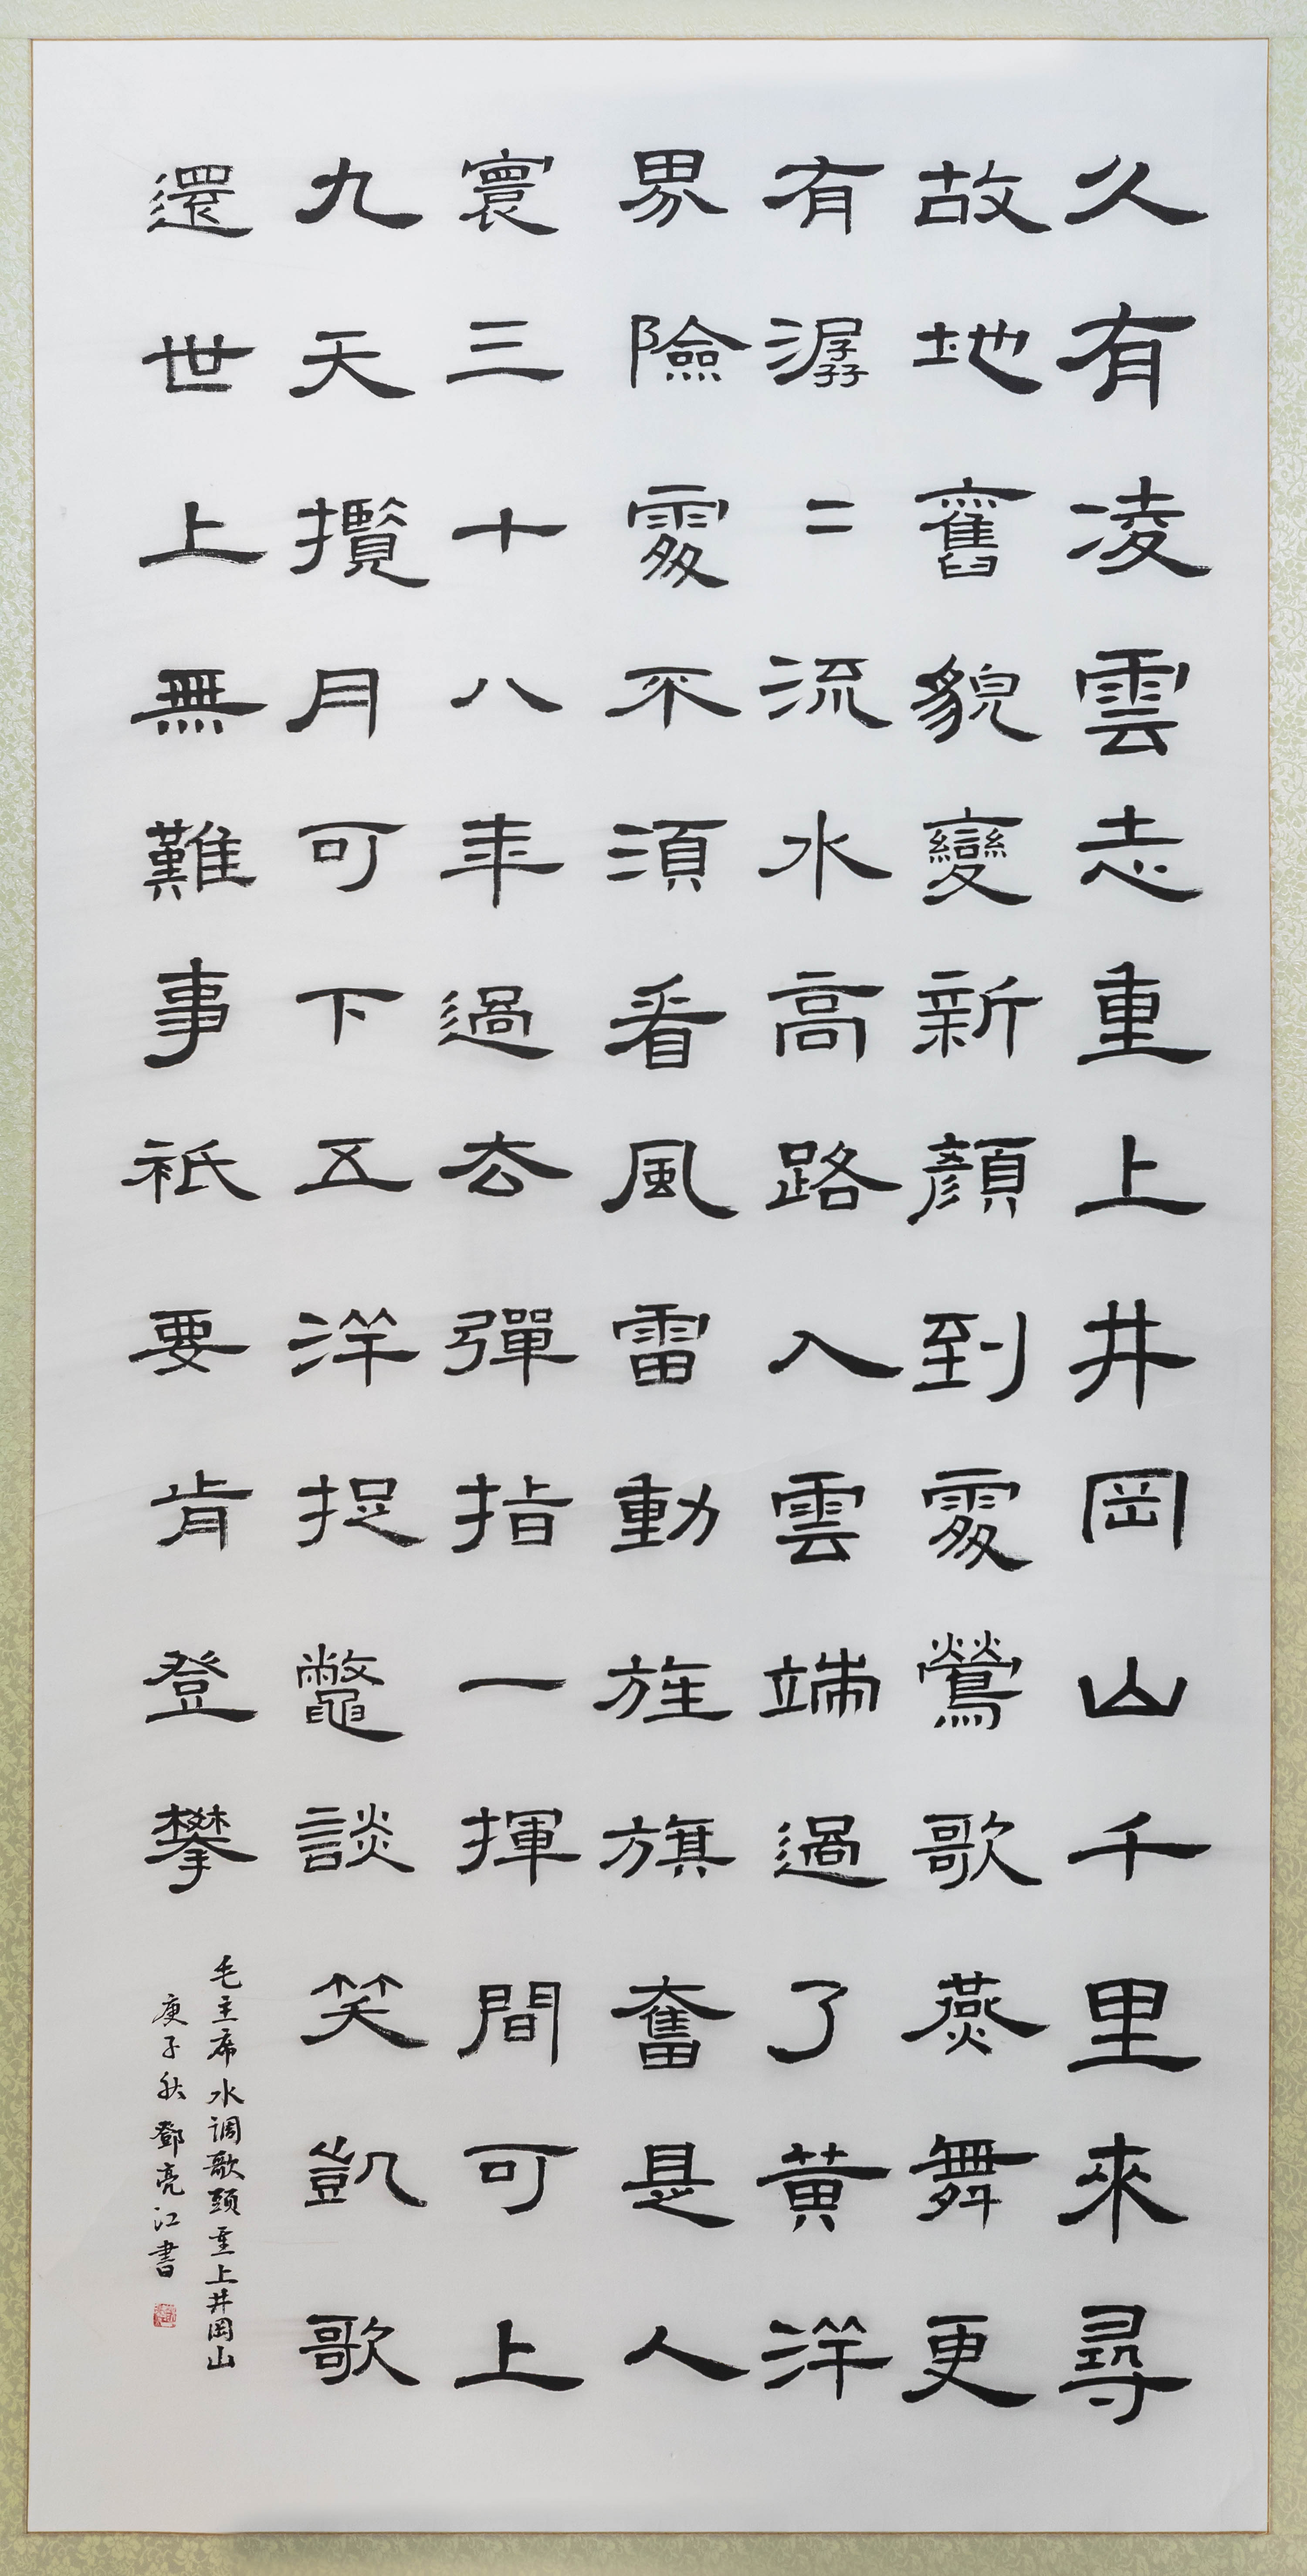 久有凌雲志重上井岡山千里來尋
故地舊貌變新顏到處鶯歌燕舞更
有潺〻流水高路入雲端過了黃洋
界險處不須看風雷動旌旗奮是人
寰三十八年過去彈指一揮間可上
九天攬月可下五洋捉鼈談笑凱歌
還世上無難事祇要肯登攀
毛主席水调歌頭重上井岡山
庚子秋鄧亮江書